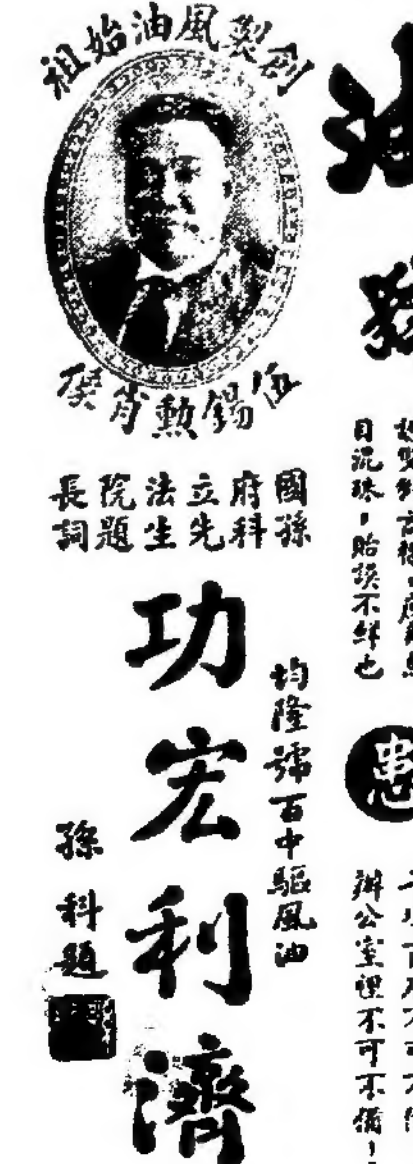 創製風油始祖
伍錫勳肖像
國府立法院長
孫科先生題詞
均隆號百中驅風油
功宏利濟
孫科題
油
目混珠，貽誤不鮮也
患
辦公室裡不可不備！